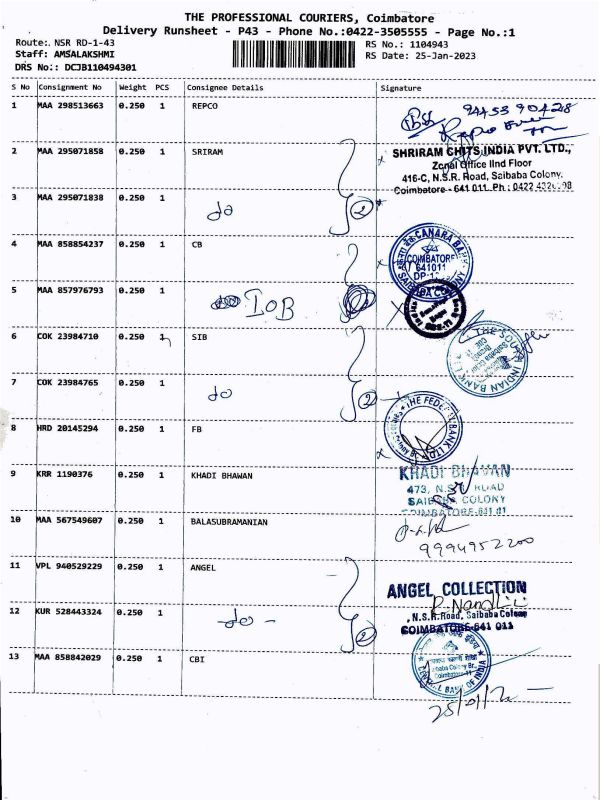 THE PROFESSIONAL COURIERS, Coimbatore
Delivery Runsheet - P43 - Phone No.:0422-3505555 - Page No.:1
Route:. NSR RD-1-43
RS No.: 1104943
Staff: AMSALAKSHMI
RS Date: 25-Jan-2023
DRS No.: DCJB110494301
S No Consignment No Weight PCS Consignee Details Signature
1 MAA 298513663 0.250 1 REPCO
9445390428
2 MAA 295071858 0.250 1 SRIRAM
SHRIRAM CHITS INDIA PVT. LTD.,
Zonal Office IInd Floor
416-C, N.S.R. Road, Saibaba Colony,
Coimbatore - 641 011. Ph : 0422
3 MAA 295071838 0.250 1
do 2
4 MAA 858854237 0.250 1 CB
CANARA BANK
COIMBATORE
641011
SAIBABA COLONY
5 MAA 857976793 0.250 1 IOB
6 COK 23984710 0.250 1 SIB
THE SOUTH INDIAN BANK LTD
7 COK 23984765 0.250 1
do 2
8 HRD 20145294 0.250 1 FB
THE FEDERAL BANK LTD
9 KRR 1190376 0.250 1 KHADI BHAWAN
KHADI BHAVAN
473, N.S.R. ROAD
SAIBABA COLONY
COIMBATORE-641 011
10 MAA 567549607 0.250 1 BALASUBRAMANIAN
9994952200
11 VPL 940529229 0.250 1 ANGEL
ANGEL COLLECTION
N.S.R.Road, Saibaba Colony
COIMBATORE-641 011
12 KUR 528443324 0.250 1
do 2
13 MAA 858842029 0.250 1 CBI
CENTRAL BANK OF INDIA